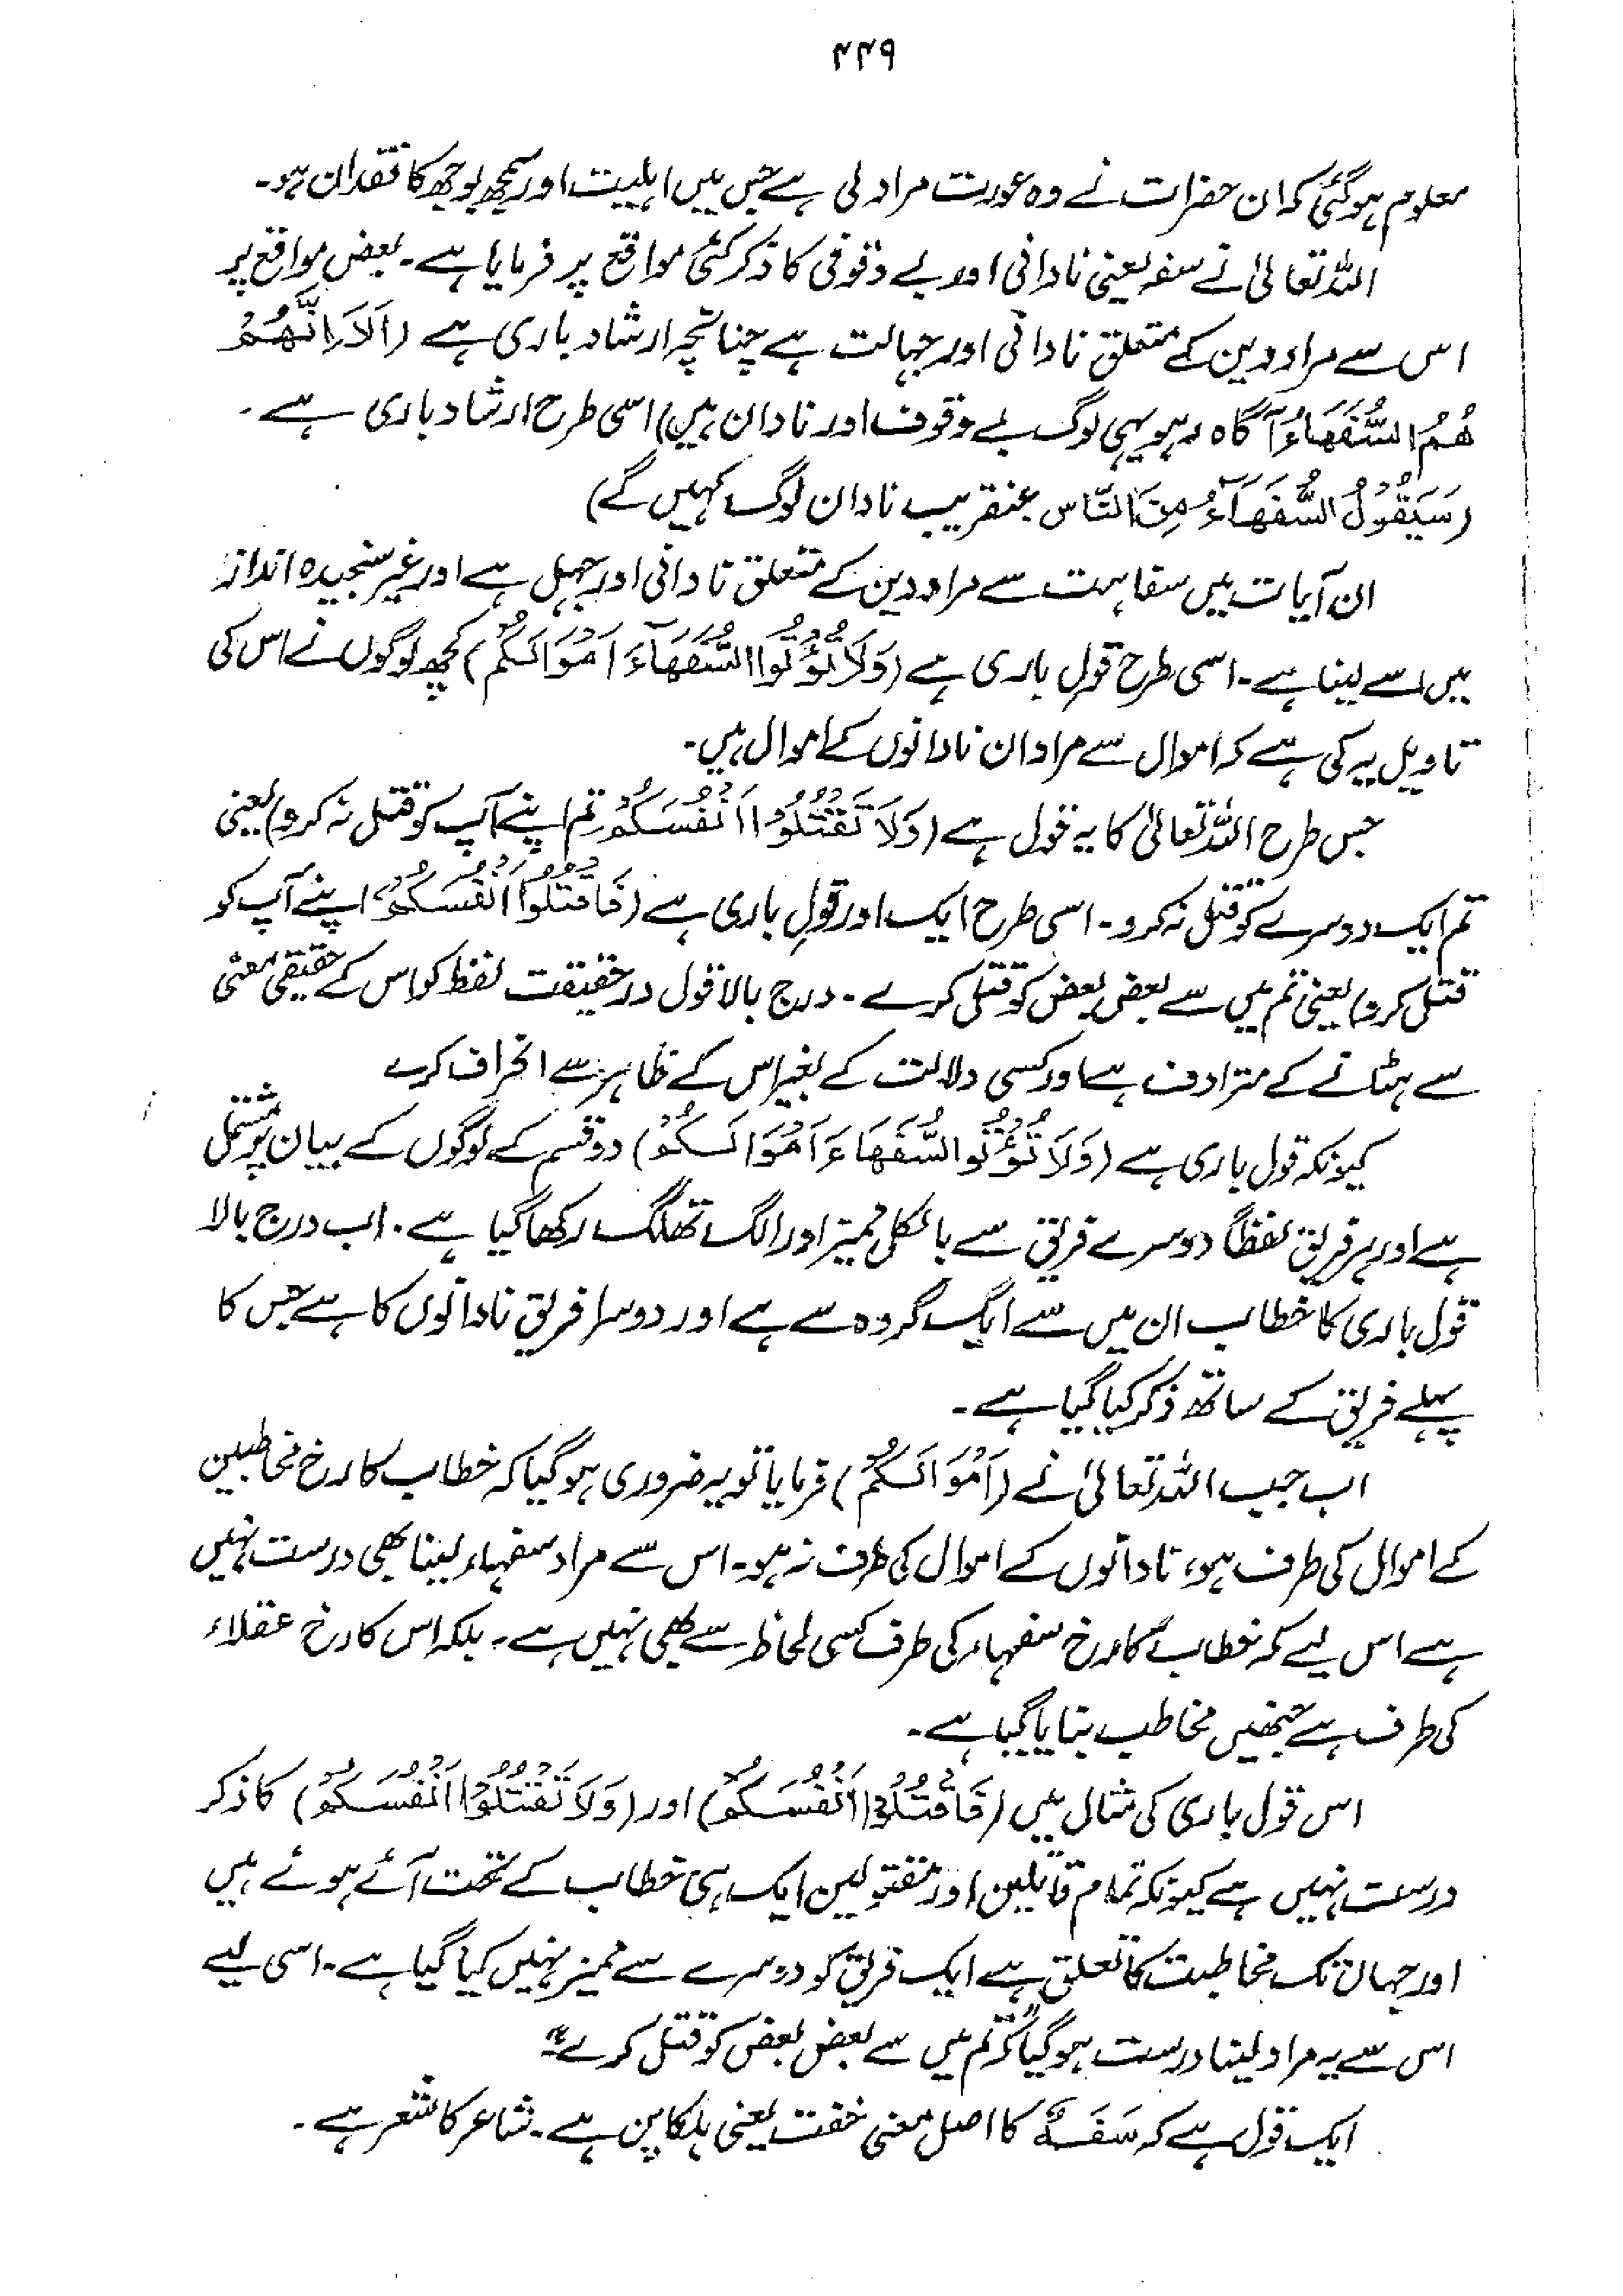 ۴۴۹
معلوم ہوگئی کہ ان حضرات نے وہ عورت مراد لی ہے جس میں اہلیت اور سمجھ بوجھ کا فقدان ہو۔
اللہ تعالیٰ نے سفہ یعنی نادانی اور بے وقوفی کا ذکر کئی مواقع پر فرمایا ہے۔ بعض مواقع پر
اس سے مراد دین کے متعلق نادانی اور جہالت ہے چنانچہ ارشاد باری ہے (اَلَا اِنَّھُمْ
ھُمُ السُّفَھَاءُ آگاہ رہو یہی لوگ بے وقوف اور نادان ہیں) اسی طرح ارشاد باری ہے۔
(سَیَقُوْلُ السُّفَھَآءُ مِنَ النَّاس عنقریب نادان لوگ کہیں گے)
ان آیات میں سفاہت سے مراد دین کے متعلق نادانی اور جہل ہے اور غیر سنجیدہ انداز
میں اسے لینا ہے۔ اسی طرح قول باری ہے (وَلَا تُؤْتُوا السُّفَھَآءَ اَمْوَالَکُمْ) کچھ لوگوں نے اس کی
تاویل یہ کی ہے کہ اموال سے مراد ان نادانوں کے اموال ہیں۔
جس طرح اللہ تعالیٰ کا یہ قول ہے (وَلَا تَقْتُلُوْا اَنْفُسَکُمْ تم اپنے آپ کو قتل نہ کرو) یعنی
تم ایک دوسرے کو قتل نہ کرو۔ اسی طرح ایک اور قولِ باری ہے (فَاقْتُلُوْا اَنْفُسَکُمْ اپنے آپ کو
قتل کرو) یعنی تم میں سے بعض بعض کو قتل کرے۔ درج بالا قول درحقیقت لفظ کو اس کے حقیقی معنی
سے ہٹانے کے مترادف ہے اور کسی دلالت کے بغیر اس کے ظاہر سے انحراف کرے
کیونکہ قول باری ہے (وَلَا تُؤْتُوا السُّفَھَاءَ اَمْوَالَکُمْ) دو قسم کے لوگوں کے بیان پر مشتمل
ہے اور ہر فریق لفظاً دوسرے فریق سے بالکل ممیز اور الگ تھلگ رکھا گیا ہے۔ اب درج بالا
قول باری کا خطاب ان میں سے ایک گروہ سے ہے اور دوسرا فریق نادانوں کا ہے جس کا
پہلے فریق کے ساتھ ذکر کیا گیا ہے۔
اب جب اللہ تعالیٰ نے (اَمْوَالَکُمْ) فرمایا تو یہ ضروری ہوگیا کہ خطاب کا رخ مخاطبین
کے اموال کی طرف ہو، نادانوں کے اموال کی طرف نہ ہو۔ اس سے مراد سفہاء لینا بھی درست نہیں
ہے اس لیے کہ خطاب کا رخ سفہاء کی طرف کسی لحاظ سے بھی نہیں ہے۔ بلکہ اس کا رخ عقلاء
کی طرف ہے جنھیں مخاطب بنایا گیا ہے۔
اس قول باری کی مثال میں (فَاقْتُلُوْا اَنْفُسَکُمْ) اور (وَلَا تَقْتُلُوْا اَنْفُسَکُمْ) کا ذکر
درست نہیں ہے کیونکہ تمام قاتلین اور مقتولین ایک ہی خطاب کے تحت آئے ہوئے ہیں
اور جہاں تک مخاطبت کا تعلق ہے ایک فریق کو دوسرے سے ممیز نہیں کیا گیا ہے۔ اسی لیے
اس سے یہ مراد لینا درست ہوگیا کہ "تم میں سے بعض بعض کو قتل کرے"۔
ایک قول ہے کہ سَفَہٌ کا اصل معنی خفت یعنی ہلکا پن ہے۔ شاعر کا شعر ہے۔